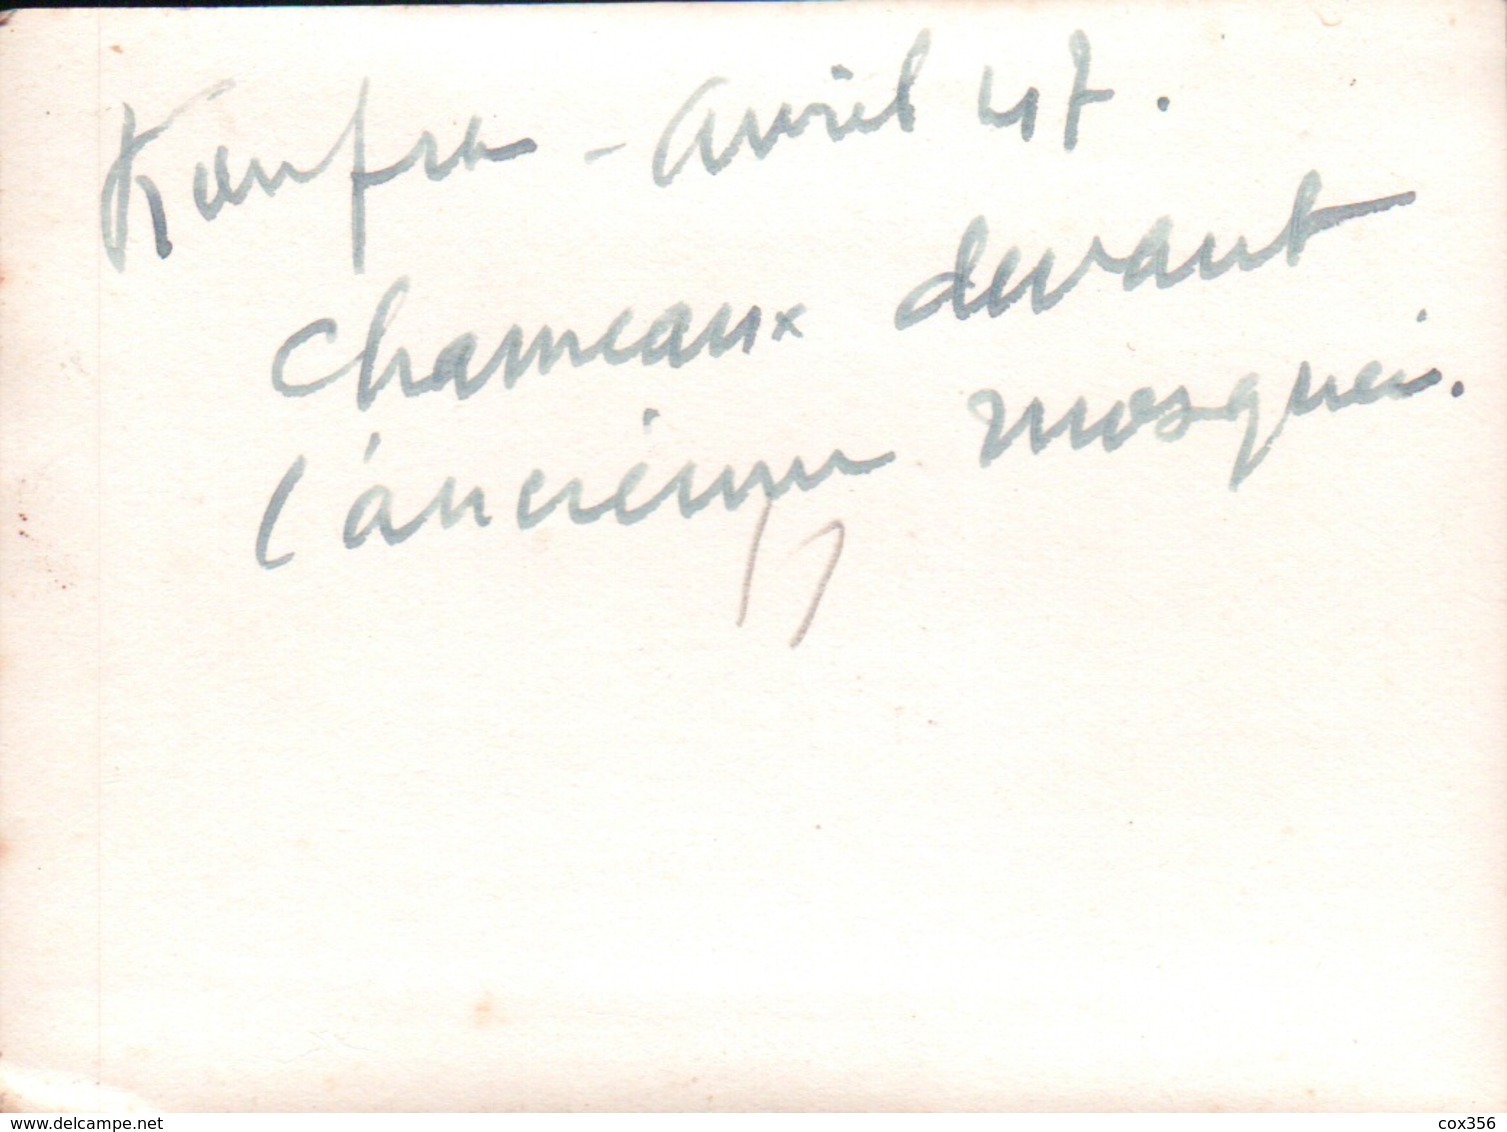 Koufra - Avril 47.
Chameaux devant
l'ancienne mosquée.
delcampe.net
cox356